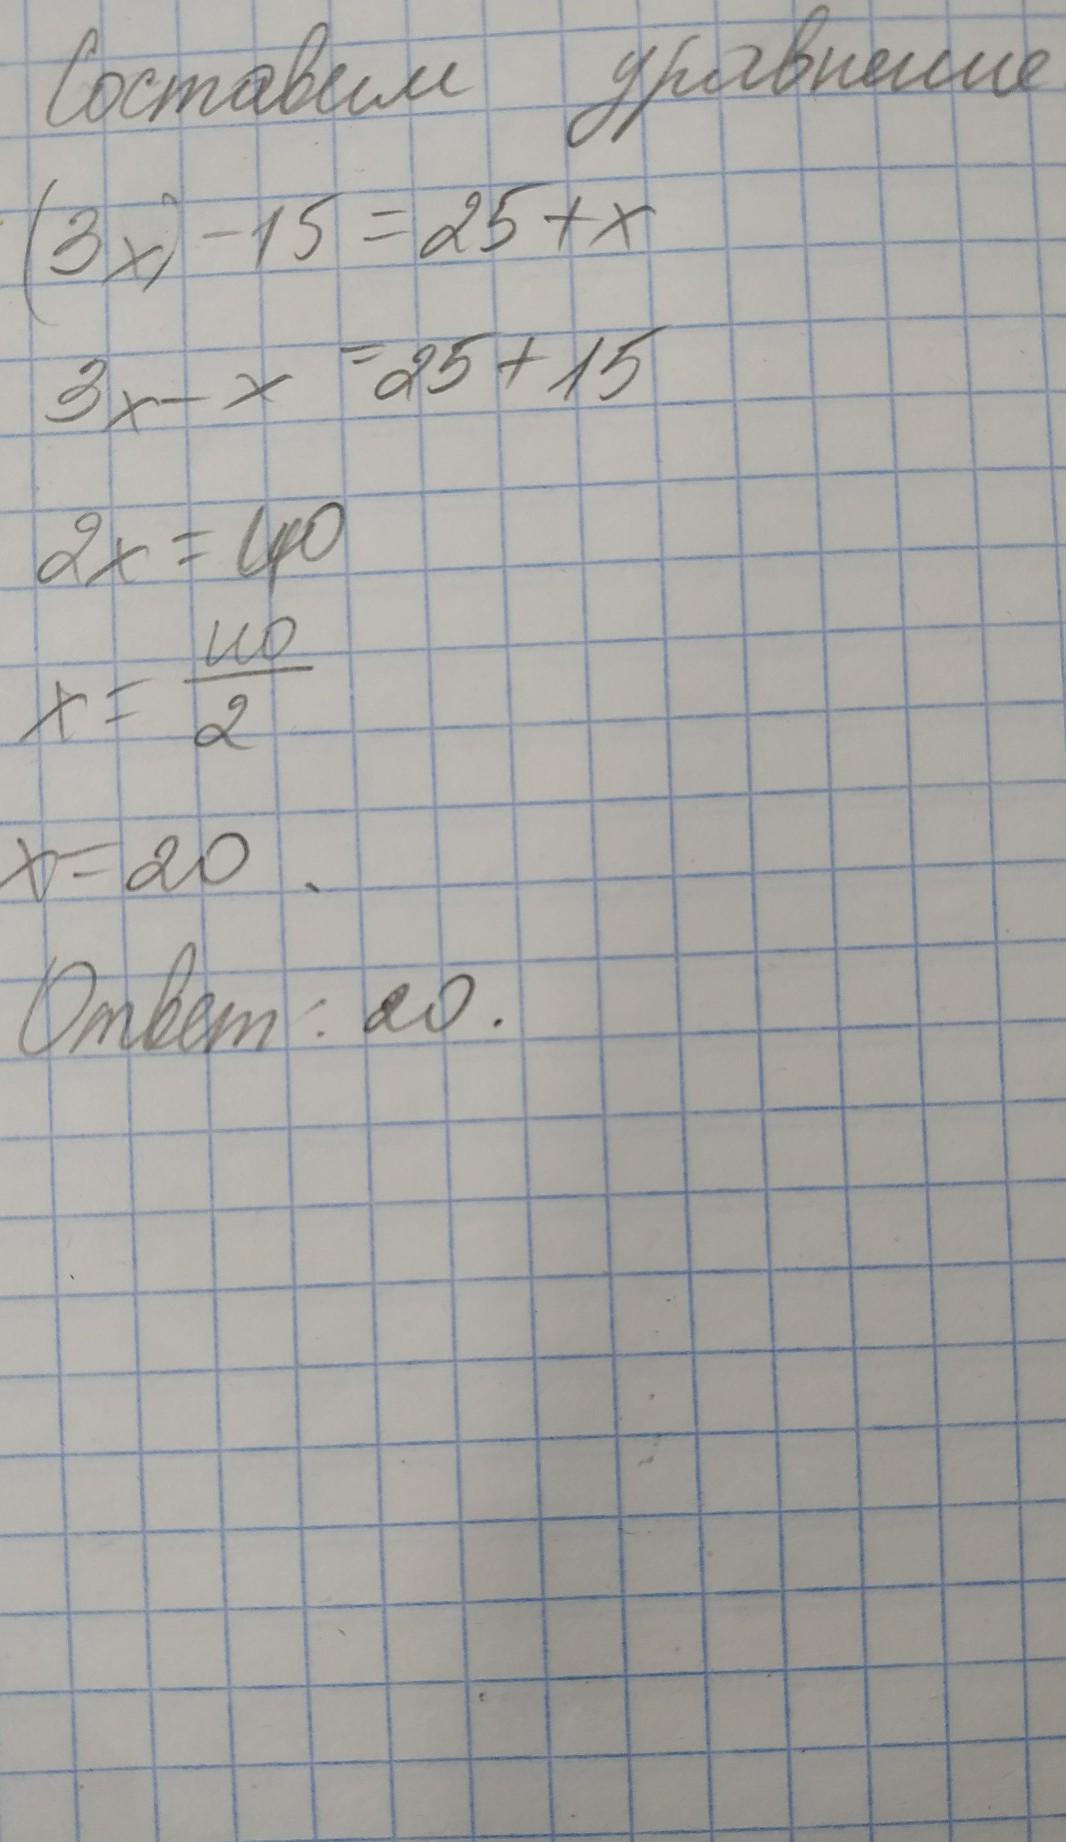 Составим уравнение
(3x) - 15 = 25 + x
3x - x = 25 + 15
2x = 40
x = 40/2
x = 20.
Ответ: 20.